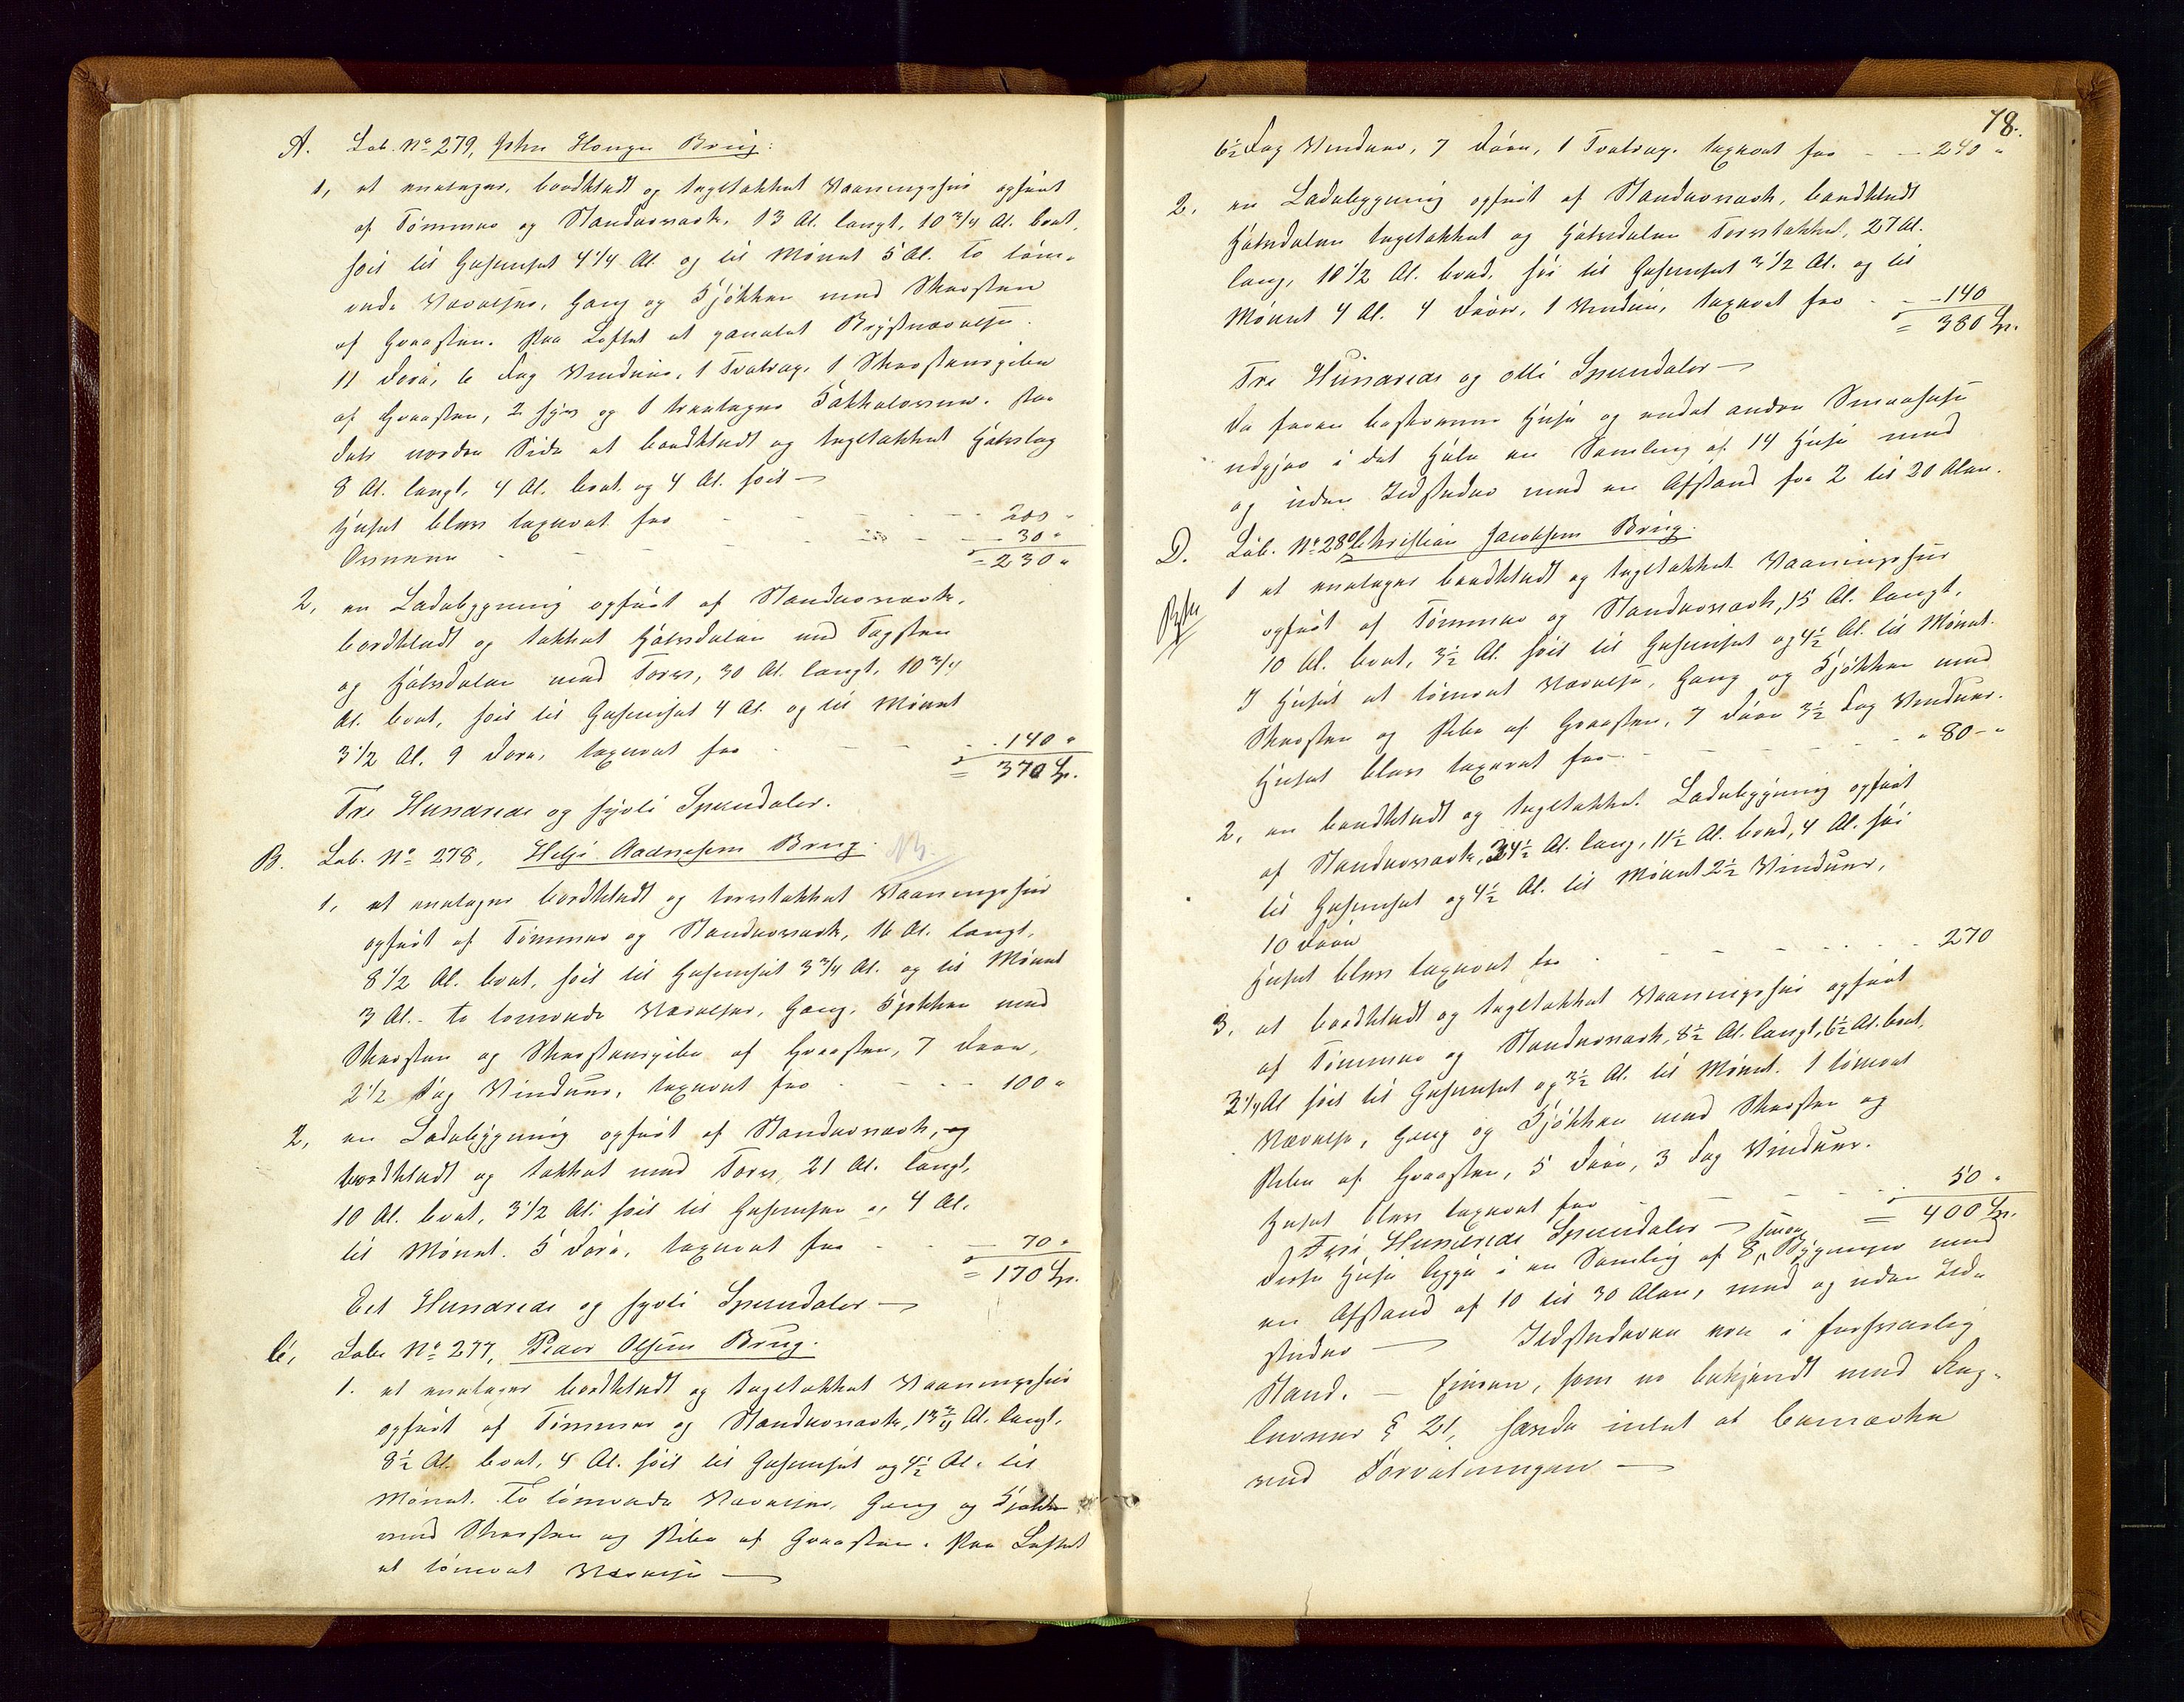 A. Lob. No 279, John Hougs Brug:
1, et enetages, bordklædt og tegltækket Vaaningshus opført
af Tømmer og Standerværk, 13 Al. langt, 10 3/4 Al. bret,
høit til Gesimset 4 1/4 Al. og til Mønet 5 Al. To tøm-
rede Værelser, Gang og Kjøkken med Skorsten
af Graasten. Paa Loftet et panelet Værelse.
11 Døre, 6 Fag Vinduer, 1 Skorstenspibe
af Graasten, 2 og 1 treetages Kakkelovne. Paa
dets nordre Side et bordklædt og tegltækket Halvtag
8 Al. langt, 4 Al. bret og 4 Al. høit —
Huset blev taxeret for - - - 200 "
Ovnene - - - 30 "
= 230 "
2, en Ladebygning opført af Standerværk,
bordklædt og tækket Halvdelen med Tagsten
og Halvdelen med Torv, 30 Al. langt, 10 3/4
Al. bret, høit til Gesimset 4 Al. og til Mønet
3 1/2 Al. 9 Døre, taxeret for - - 140 "
= 370 Sp.
Tre Hundrede og sytti Speciedaler.
B. Lob. No 278, Helje Aadnesens Brug. NB.
1, et enetages bordklædt og torvtækket Vaaningshus
opført af Tømmer og Standerværk, 16 Al. langt,
8 1/2 Al. bret, høit til Gesimset 3 3/4 Al. og til Mønet
3 Al. - to tømrede Værelser, Gang, Kjøkken med
Skorsten og Skorstenspibe af Graasten, 7 Døre,
2 1/2 Fag Vinduer, taxeret for - - - 100 "
2, en Ladebygning opført af Standerværk, og
bordklædt og tækket med Torv, 21 Al. langt,
10 Al. bret, 3 1/2 Al. høit til Gesimsen og 4 Al.
til Mønet. 5 Døre, taxeret for - - - 70 "
= 170 Sp.
Eet Hundrede og sytti Speciedaler —
C, Lobe No 277, Peder Olsens Brug.
1. et enetages bordklædt og tegltækket Vaaningshus
opført af Tømmer og Standerværk, 13 3/4 Al. langt,
8 1/2 Al. bret, 4 Al. høit til Gesimset og 4 1/2 Al. til
Mønet. To tømrede Værelser, Gang og Kjøkken
med Skorsten og Pibe af Graasten. Paa Loftet
et tømret Værelse —
78.
6 1/2 Fag Vinduer, 7 Døre, 1 taxeret for - - 240 "
2, en Ladebygning opført af Standerværk, bordklædt
Halvdelen tegltækket og Halvdelen Torvtækket, 27 Al.
lang, 10 1/2 Al. bred, høi til Gesimset 3 1/2 Al. og til
Mønet 4 Al. 4 Døre, 1 Vindu, taxeret for - - 140
= 380 Sp.
Tre Hundrede og otti Speciedaler —
De foran beskrevne Huse og endel andre Smaahuse
udgjør i det Hele en Samling af 14 Huse med
og uden Ildsteder med en Afstand fra 2 til 20 Alen.
D. Lob. No 280 Christian Jacobsens Brug.
1 et enetages bordklædt og tegltækket Vaaningshus
opført af Tømmer og Standerværk, 15 Al. langt,
10 Al. bret, 3 1/2 Al. høit til Gesimset og 4 1/2 Al. til Mønet.
I Huset et tømret Værelse, Gang og Kjøkken med
Skorsten og Pibe af Graasten, 7 Døre 3 1/2 Fag Vinduer.
Huset blev taxeret for - - - " 80 - "
2, en bordklædt og tegltækket Ladebygning opført
af Standerværk, 34 1/2 Al. lang, 11 1/2 Al. bred, 4 Al. høi
til Gesimset og 4 1/2 Al. til Mønet 2 1/2 Vinduer,
10 Døre
Huset blev taxeret for - - - 270
3, et bordklædt og tegltækket Vaaningshus opført
af Tømmer og Standerværk, 8 1/2 Al. langt, 6 1/2 Al. bret,
3 1/4 Al høit til Gesimset og 3 1/2 Al. til Mønet. 1 tømret
Værelse, Gang og Kjøkken med Skorsten og
Pibe af Graasten, 5 Døre, 3 Fag Vinduer.
Huset blev taxeret for - - - 50 "
= 400 Sp.
Fire Hundrede Speciedaler —
Disse Huse ligge i en Samling af 8 Bygninger med
en Afstand af 10 til 30 Alen, med og uden Ild-
steder — Ildstederne ere i forsvarlig
Stand. — Eieren, som er bekjendt med Reg-
lernes § 21, havde intet at bemærke
ved Forretningen —